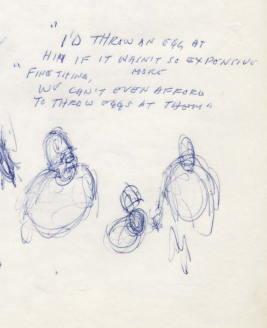 "I'D THROW AN EGG AT
HIM IF IT WASN'T SO EXPENSIVE
"FINE THING, MORE
WE CAN'T EVEN AFFORD
TO THROW EGGS AT